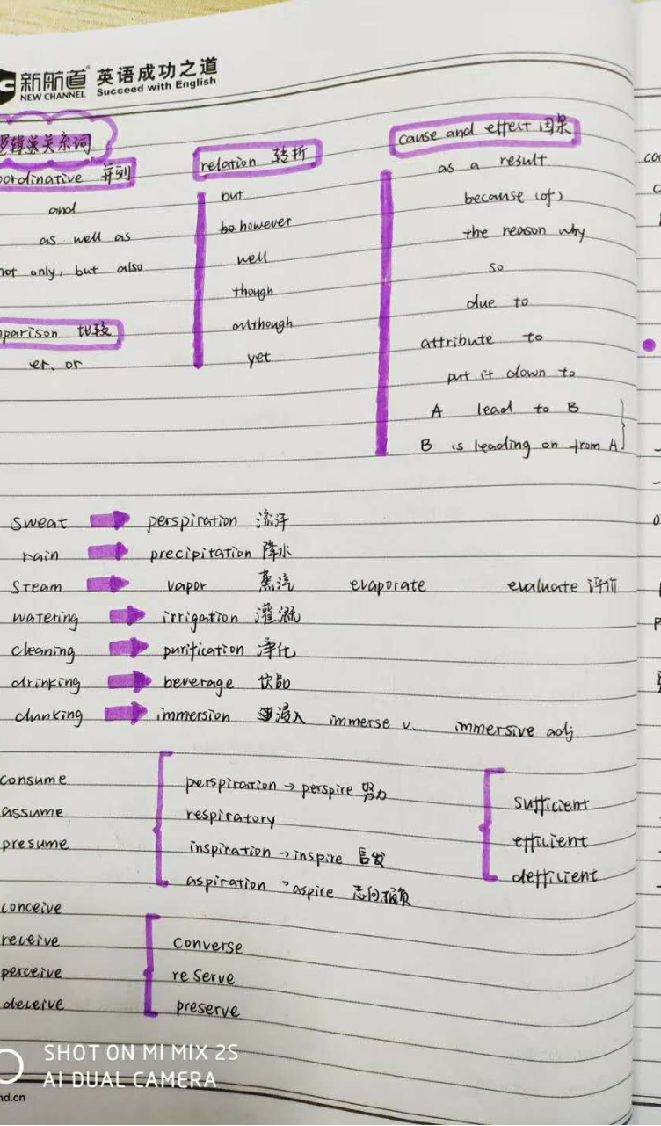 新航道 英语成功之道
NEW CHANNEL Succeed with English
逻辑关系词
coordinative 并列
and
as well as
not only, but also
comparison 比较
er, or
relation 转折
but
however
well
though
although
yet
cause and effect 因果
as a result
because (of)
the reason why
so
due to
attribute to
put it down to
A lead to B
B is leading on from A
sweat perspiration 流汗
rain precipitation 降水
steam vapor 蒸汽 evaporate evaluate 评价
watering irrigation 灌溉
cleaning purification 净化
drinking beverage 饮
immersion 浸入 immerse v. immersive adj
consume
assume
presume
perspiration → perspire 努力
respiratory
inspiration → inspire 启发
aspiration → aspire 志向抱负
sufficient
efficient
defficient
conceive
receive
perceive
deceive
converse
reserve
preserve
SHOT ON MI MIX 2S
AI DUAL CAMERA
nd.cn